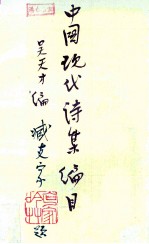 中國现代诗集编目
吴天才编 臧克家
题